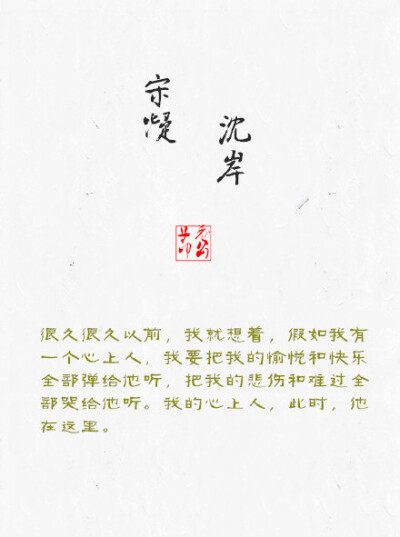 宋凝
沈岸
很久很久以前，我就想着，假如我有
一个心上人，我要把我的愉悦和快乐
全部弹给他听，把我的悲伤和难过全
部哭给他听。我的心上人，此时，他
在这里。